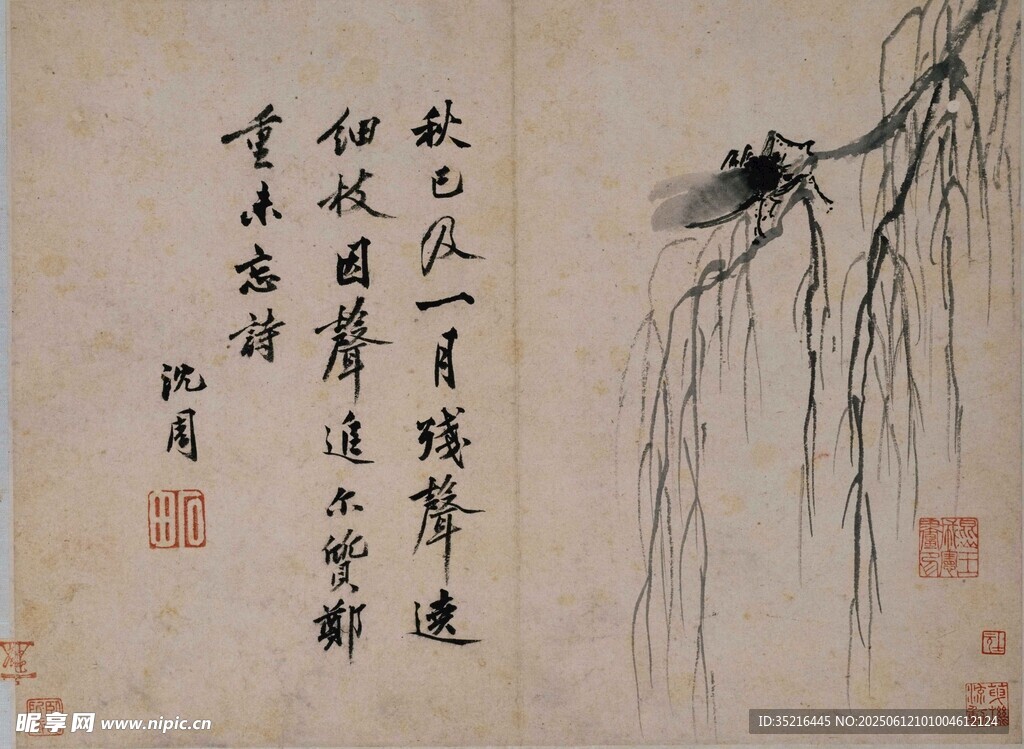 秋已及一月殘聲遶
細枝因聲追尔質鄭
重未忘詩
沈周
石田
昵享网 www.nipic.cn
ID:35216445 NO:20250612101004612124